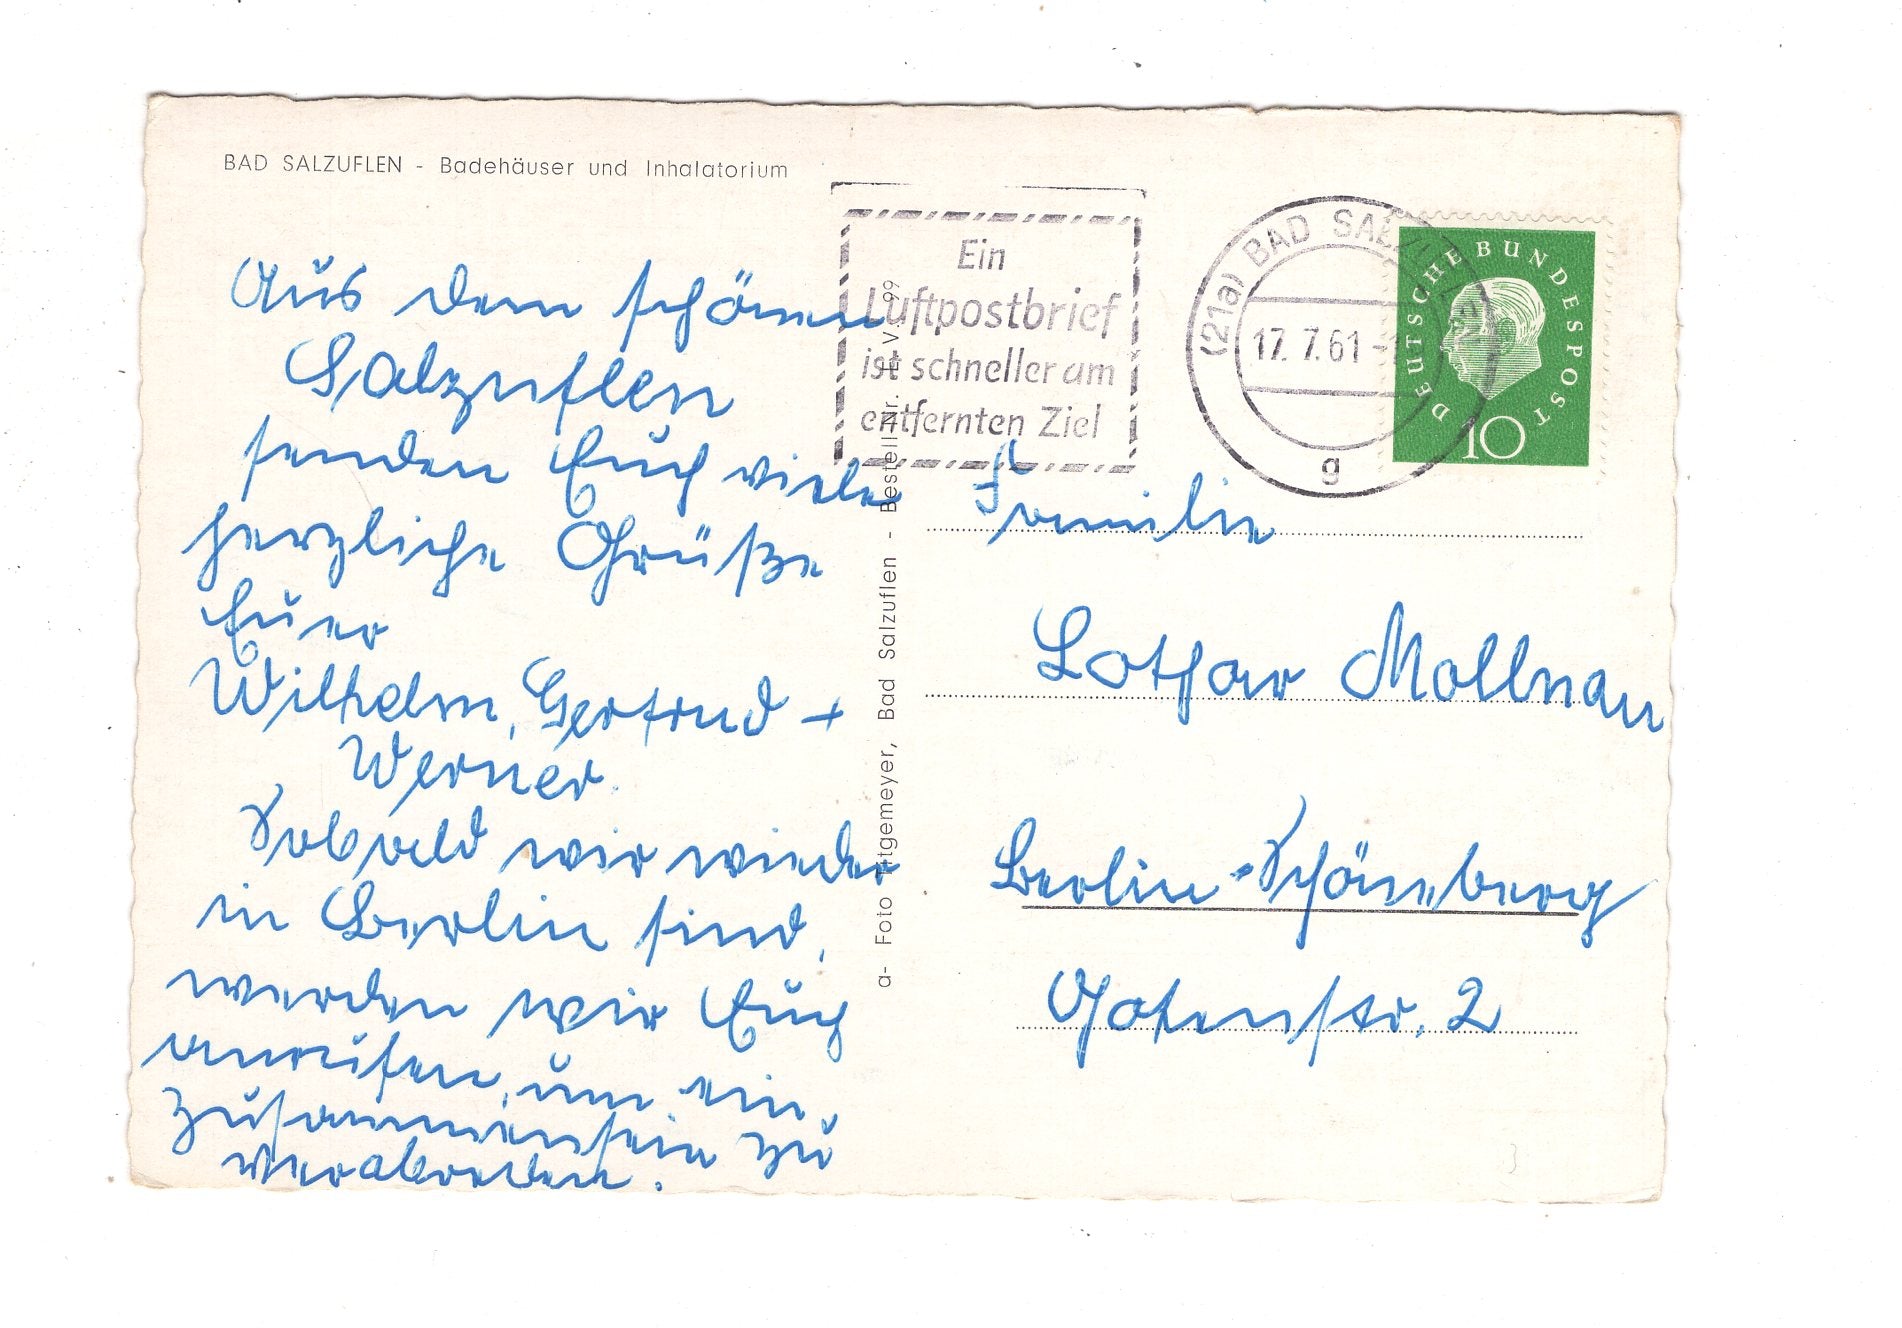 BAD SALZUFLEN - Badehäuser und Inhalatorium
Aus dem schönen
Salzuflen
senden Euch viele
herzliche Grüße
Euer
Wilhelm, Gertrud +
Werner.
Sobald wir wieder
in Berlin sind,
werden wir Euch
anrufen, um ein
Zusammensein zu
verabreden.
a- Foto Titgemeyer, Bad Salzuflen - Bestell-Nr. E V. 99
Ein
Luftpostbrief
ist schneller am
entfernten Ziel
(21a) BAD SALZUFLEN
17. 7. 61 -
g
DEUTSCHE BUNDESPOST
10
Familie
Lothar Mollnau
Berlin-Schöneberg
Gotenstr. 2